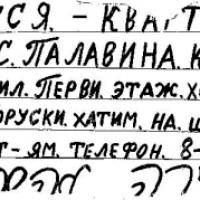 УСЯ. - КВАРТ
С. ПАЛАВИНА. К
ИЛ. ПЕРВИ. ЭТАЖ. Х
ОРУСКИ. ХАТИМ. НА. Ш
Т - ЯМ. ТЕЛЕФОН. 8-